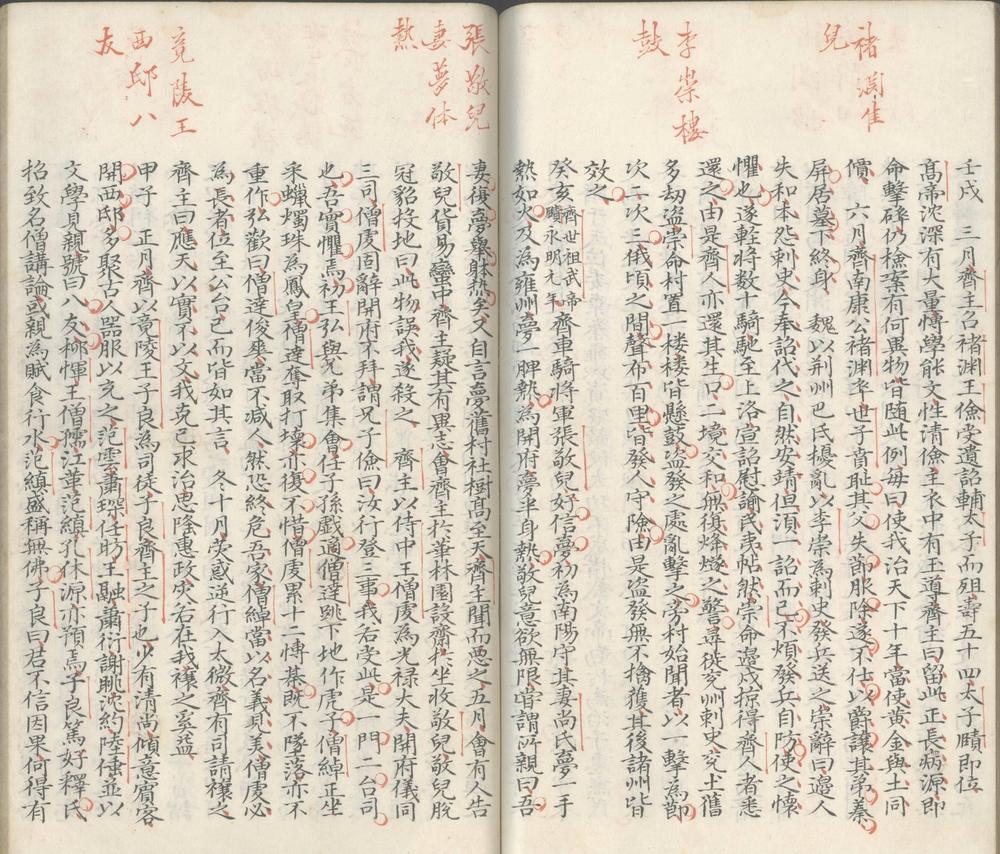 褚淵隹
兒
李崇樓
鼓
壬戌　三月齊主召褚淵王儉受遺詔輔太子而殂壽五十四太子賾即位
髙帝沈深有大量博學能文性清儉主衣中有玉道齊主曰留此正長病源即
命擊碎仍檢案有何異物皆随此例毎曰使我治天下十年當使黄金與土同
價　六月齊南康公褚渊卒世子賁耻其父失節服除遂不仕以爵讓其弟蓁
屏居墓下終身　魏以荆州巴氏擾亂以李崇為刺史發兵送之崇辭曰邉人
失和本怨刺史今奉詔代之自然安靖但湏一詔而已不煩發兵自防使之懐
懼也遂軽將数十騎馳至上洛宣詔慰諭民夷帖然崇命邉戍掠得齊人者悉
還之由是齊人亦還其生口二境交和無復烽燧之警㝷徙兖州刺史兖土舊
多刧盗崇命村置一楼楼皆懸鼓盗發之處亂擊之旁村始聞者以一擊為節
次二次三俄頃之間聲布百里皆發人守險由是盗發無不擒獲其後諸州皆
效之
癸亥齊世祖武帝賾永明元年齊車騎將軍張敬兒好信夢初為南陽守其妻尚氏夢一手
熱如火及為雍州夢一胛熱為開府夢半身熱敬兒意欲無限嘗謂所親曰吾
張敬兒
妻夢体
熱
竟陵王
西邸八
友
妻復夢舉躰熱矣又自言夢舊村社樹髙至天齊主聞而惡之五月會有人告
敬兒貨易蠻中齊主疑其有異志會齊主於華林園設齋於坐收敬兒敬兒脱
冠貂投地曰此物誤我遂殺之　齊主以侍中王僧䖍為光禄大夫開府儀同
三司僧䖍固辭開府不拜謂兄子儉曰汝行登三事我若受此是一門二台司
也吾實懼焉初王弘與兄弟集會任子孫戲適僧達跳下地作虎子僧綽正坐
采蠟燭珠為鳳皇僧達奪取打壊亦復不惜僧䖍累十二博棊既不墜落亦不
重作弘歎曰僧達俊爽當不减人然恐終危吾家僧綽當以名義見美僧䖍必
為長者位至公台已而皆如其言　冬十月熒惑逆行入太微齊有司請禳之
齊主曰應天以實不以文我克己求治思隆惠政灾若在我禳之奚益
甲子　正月齊以竟陵王子良為司徒子良齊主之子也少有清尚傾意賓客
開西邸多聚古人噐服以充之范雲蕭琛任昉王融蕭衍謝朓沈約陸倕並以
文學見親號曰八友柳惲王僧孺江革范縝孔休源亦預焉子良篤好釋氏
招致名僧講論或親為賦食行水范縝盛稱無佛子良曰君不信因果何得有